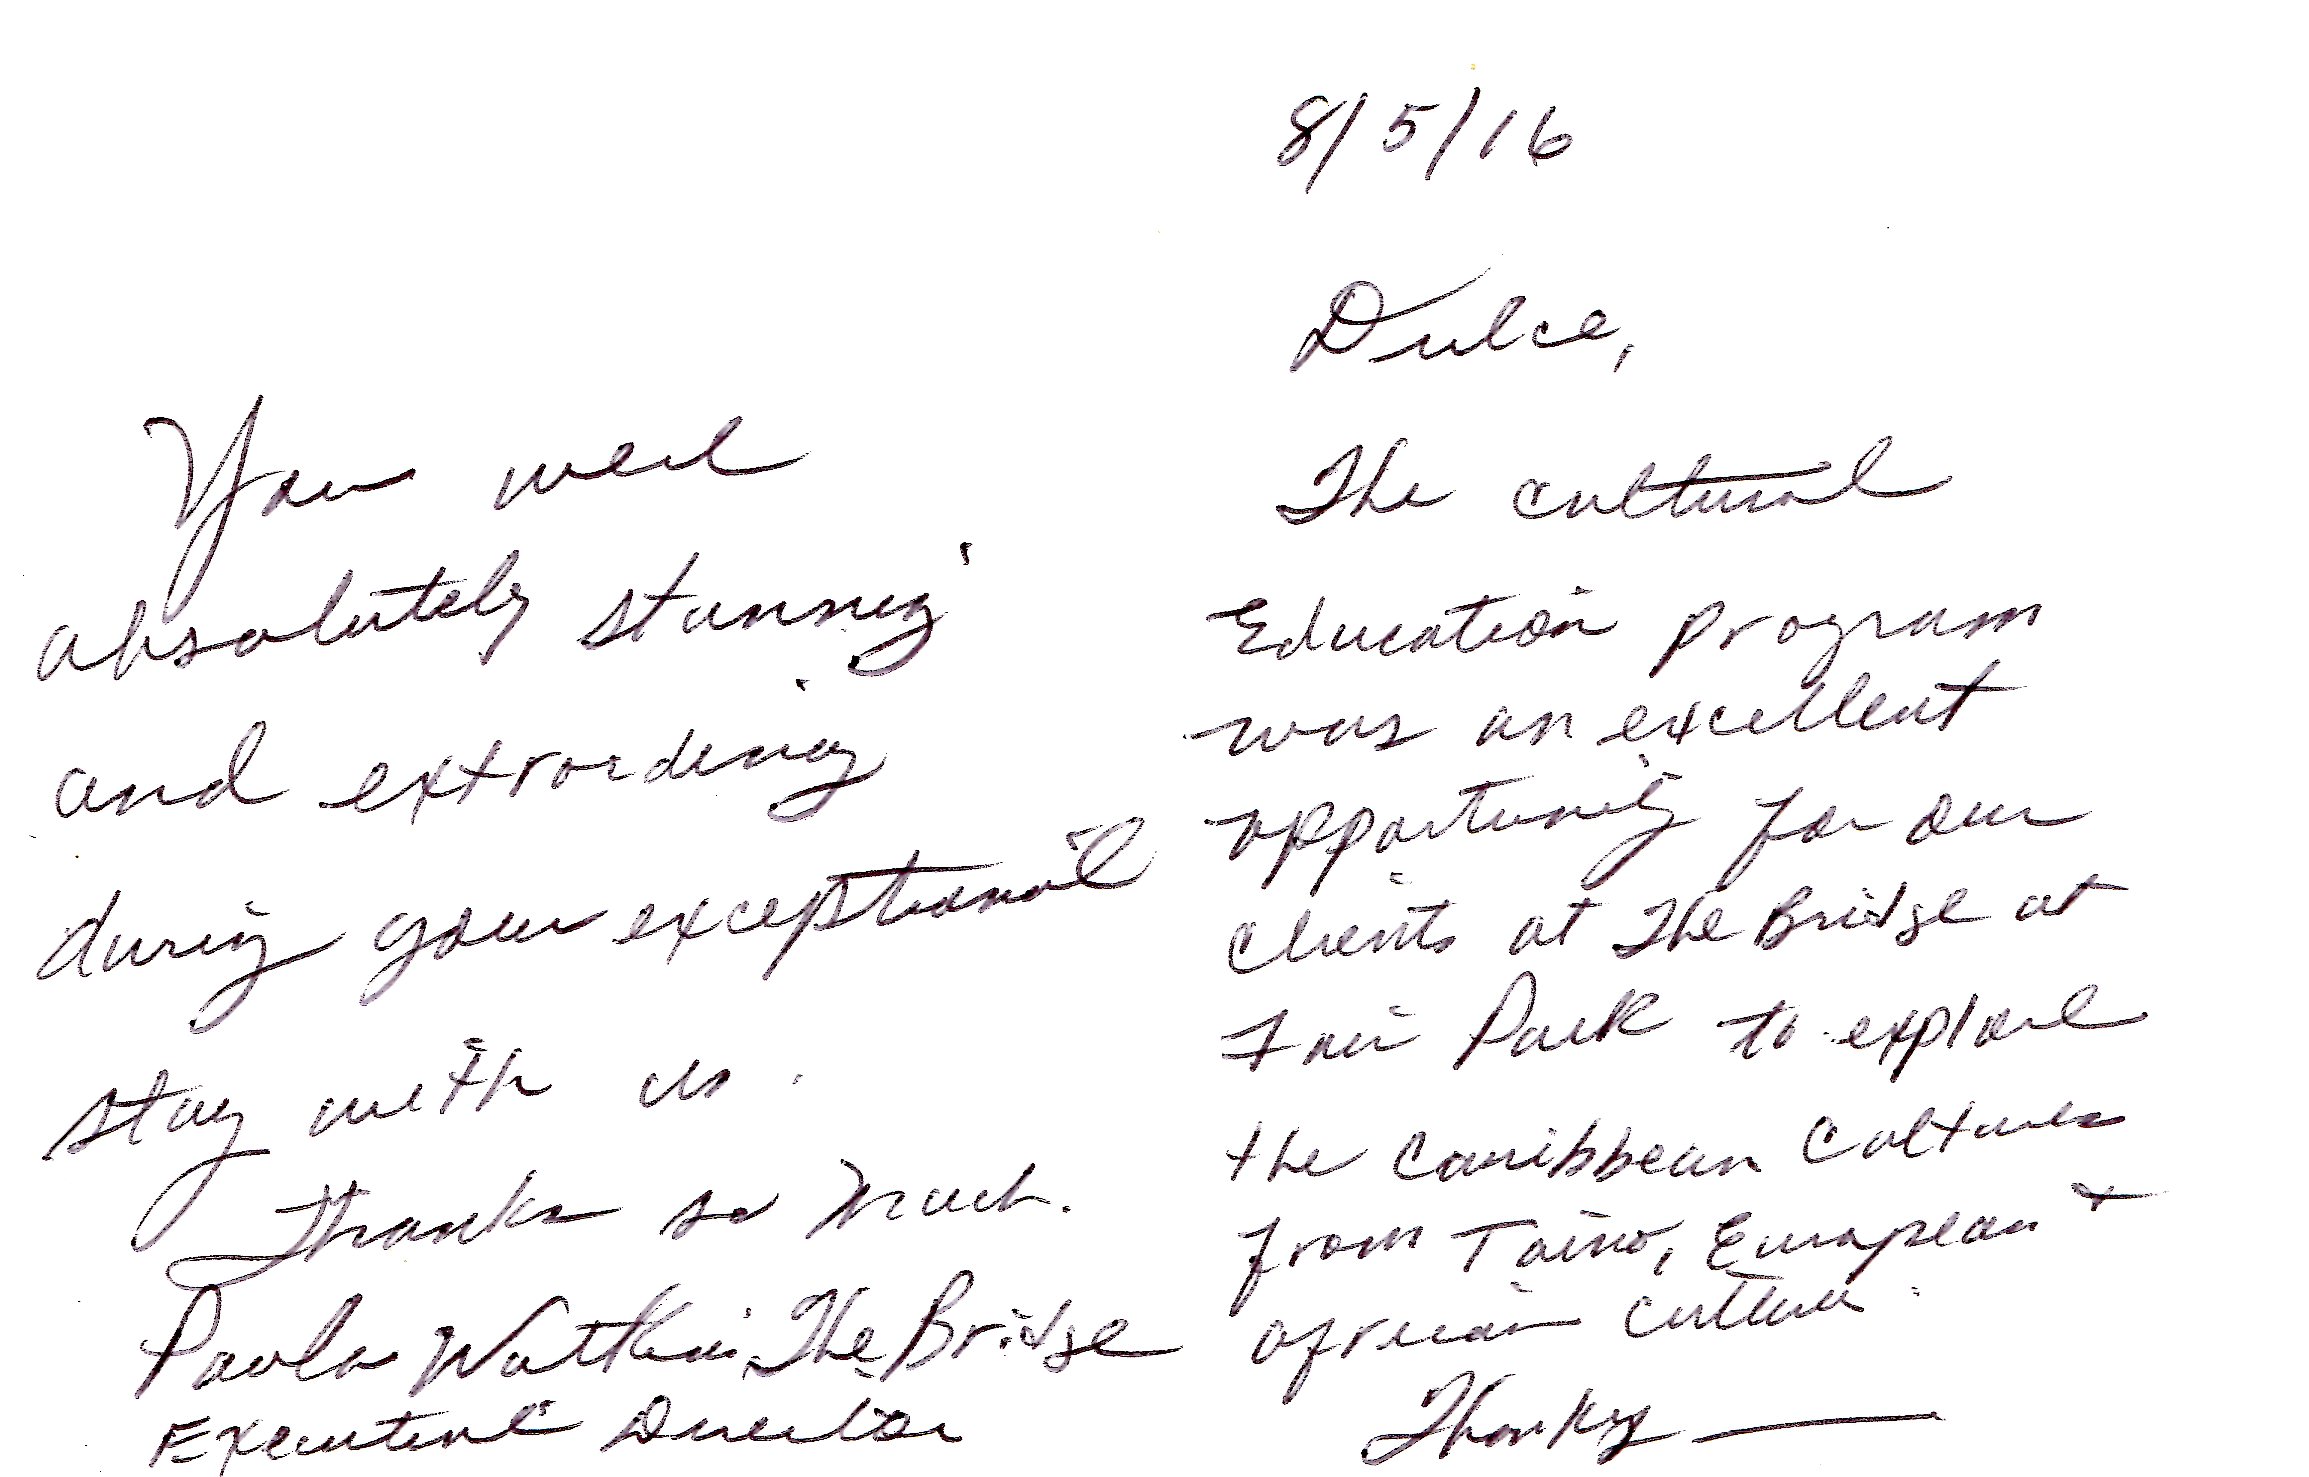 8/5/16
Dulce,
The cultural
Education program
was an excellent
opportunity for our
clients at The Bridge at
Fair Park to explore
the Caribbean Cultures
from Taino, European +
african culture.
Thanks
You were
absolutely stunning
and extrordinay
during your exceptional
stay with us.
Thanks so much.
Paula Watkins The Bridge
Executive Director